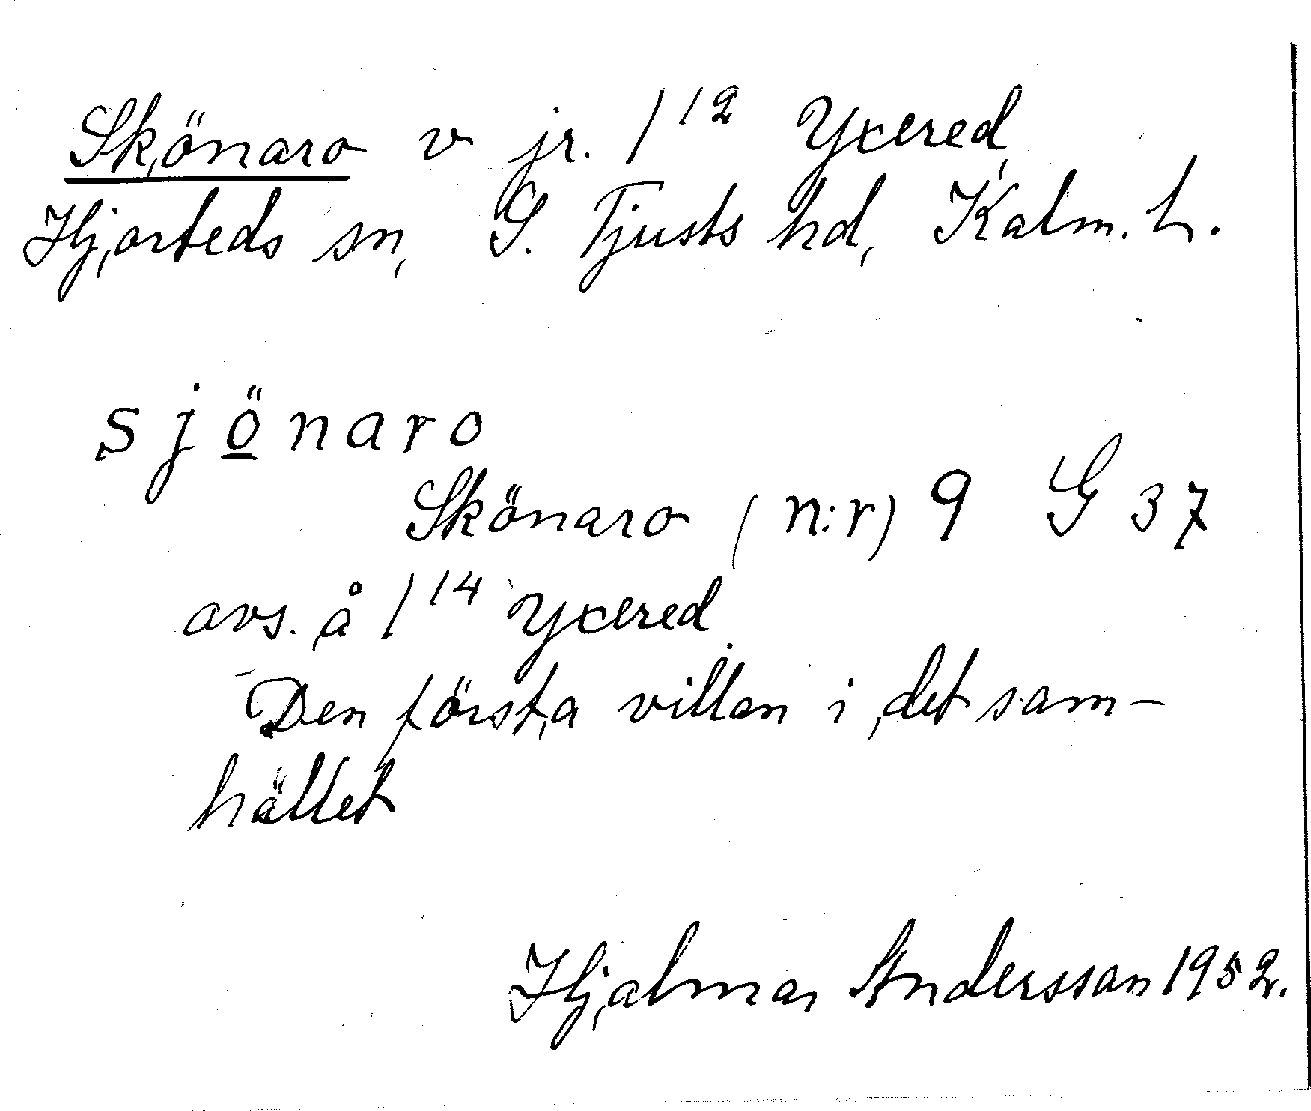 Skönaro v jr. 1¹² Yxered,
Hjorteds sn, S. Tjusts hd, Kalm. l.
sjönaro
Skönaro (n:r) 9 G 37
avs. å 1¹⁴ Yxered
Den första villan i det sam-
hället
Hjalmar Andersson 1952.